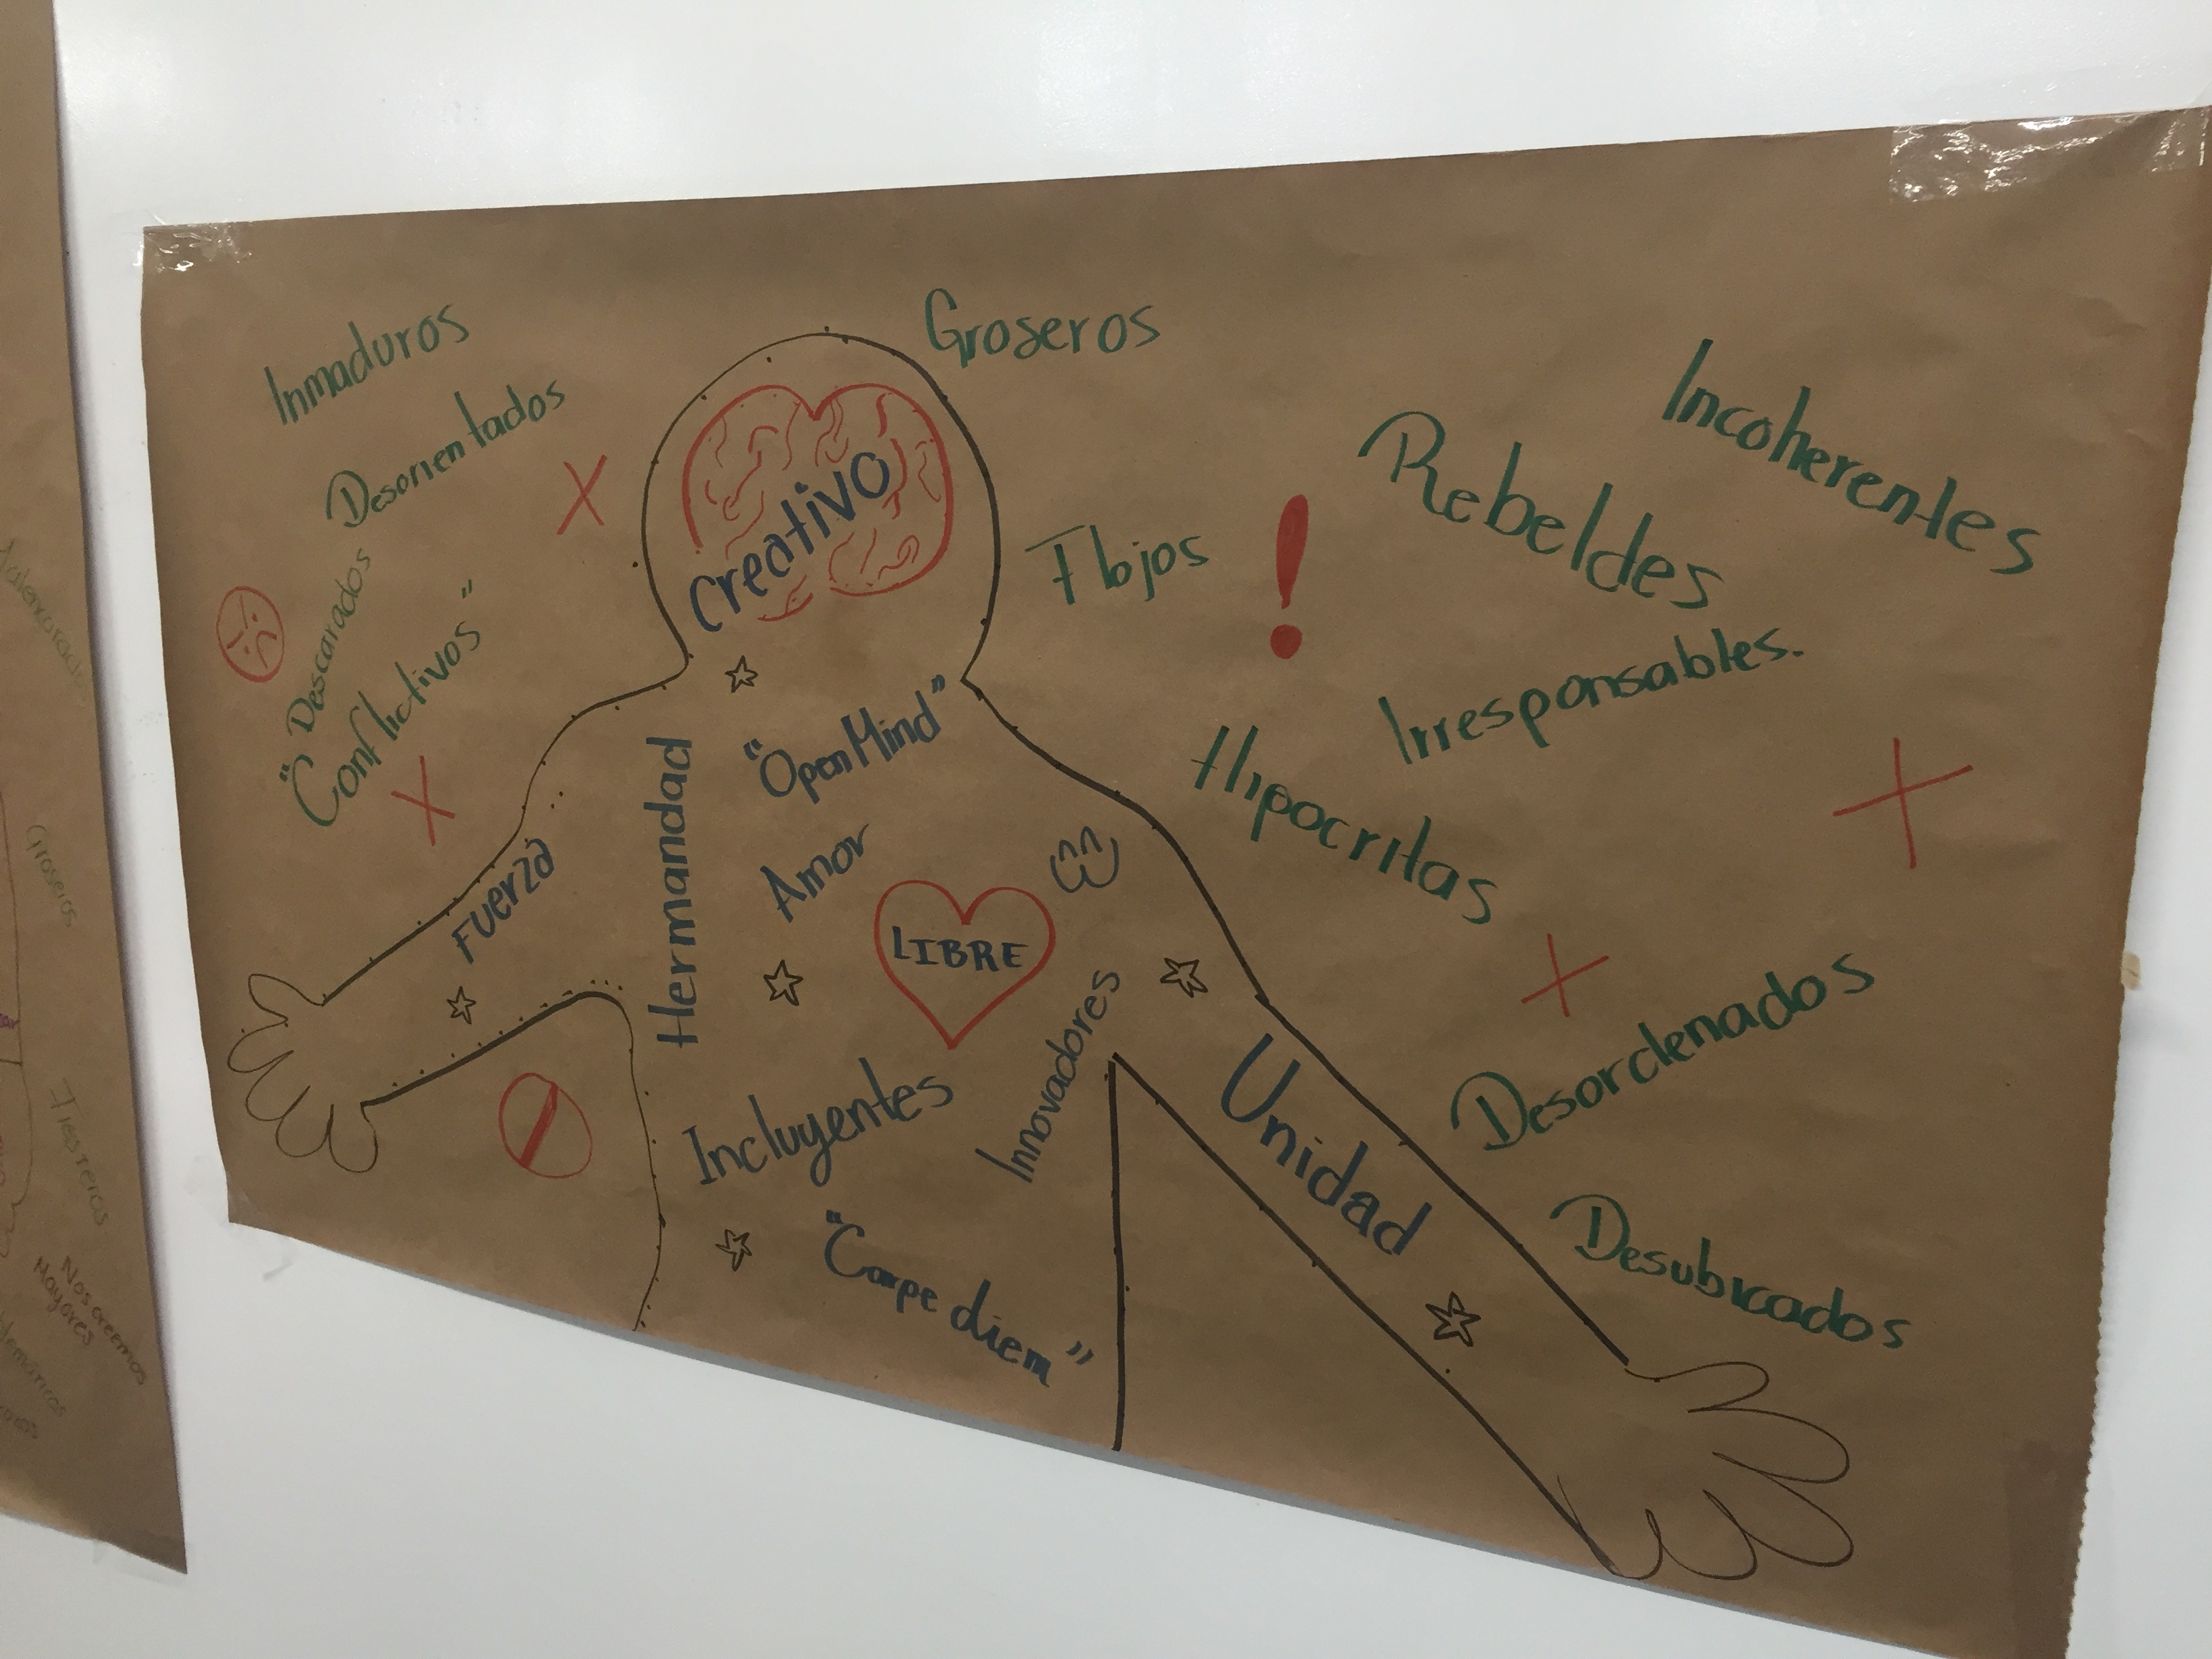 Inmaduros
Desorientados
"Descarados
Conflictivos"
Groseros
Flojos
Rebeldes
Incoherentes
Irresponsables.
Hipocritas
Desordenados
Desubicados
Creativo
"Open Mind"
Hermandad
Amor
LIBRE
Fuerza
Innovadores
Incluyentes
Unidad
"Carpe diem"
Groseros
Nos creemos
Mayores